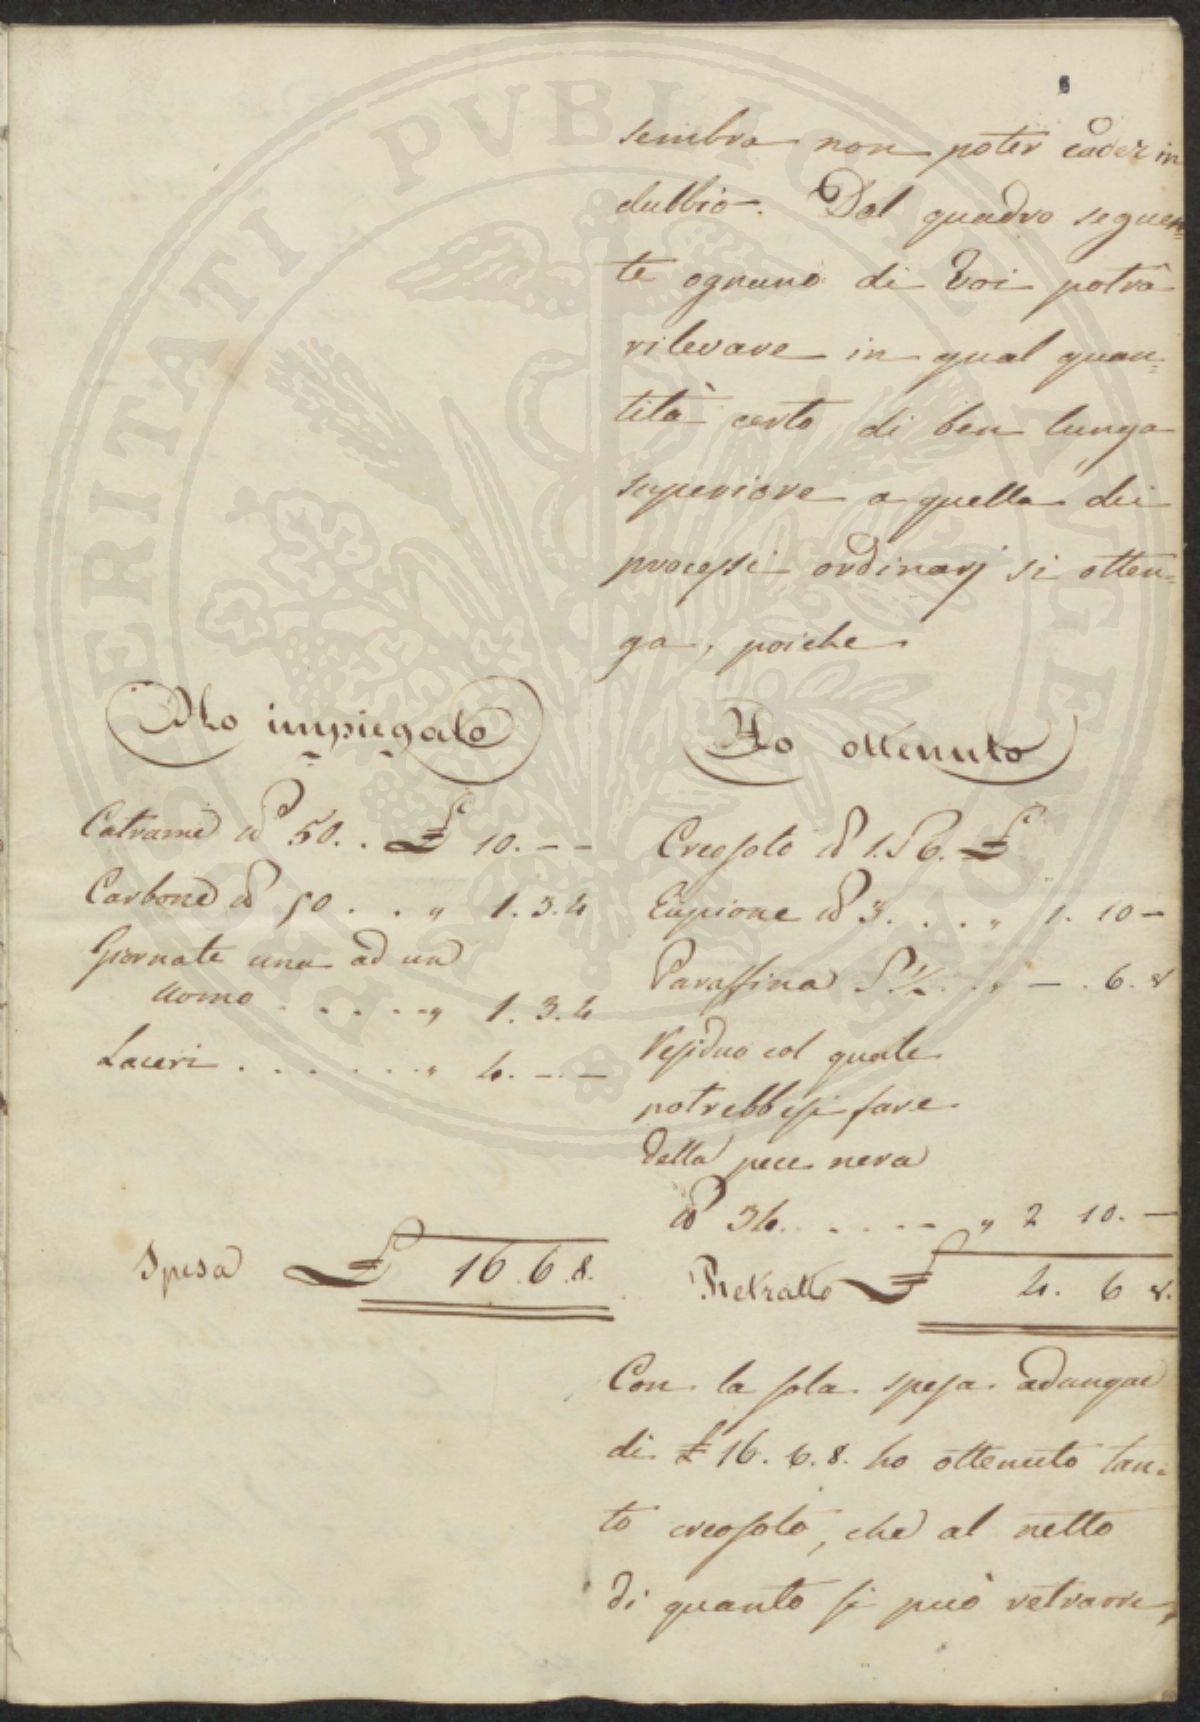 6
sembra non poter cader in
dubbio. Dal quadro seguen=
te ognuno di Voi potrà
rilevare in qual quan=
tità certo di ben lunga
superiore a quella dei
processi ordinarj si otten=
ga, poiche
Ho impiegato
Catrame ℔ 50. . £ 10. – –
Carbone ℔ 50 . . „ 1. 3. 4
Giornate una ad un
uomo . . . . . „ 1. 3. 4
Laceri . . . . . . „ 4. – –
Spesa £ 16. 6. 8.
Ho ottenuto
Creosoto ℔ 1. 6. £
Eupione ℔ 3. . . . „ 1. 10 –
Paraffina ½ . . „ – . 6. 8
Residuo col quale
potrebbesi fare
della pece nera
℔ 34. . . . . . „ 2 10. –
Retratto £ 4. 6 8.
Con la sola spesa adunque
di £ 16. 6. 8. ho ottenuto tan=
to creosoto, che al netto
di quanto si può retrarre,
PROSPERITATI PVBLICAE AVGENDAE